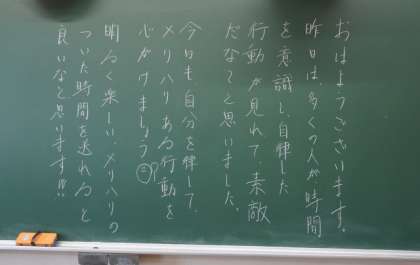 おはようございます。
昨日は、多くの人が時間
を意識し、自律した
行動が見れて、素敵
だなぁと思いました。
今日も、自分を律して、
メリハリある行動を
心がけましょう
明るく楽しい、メリハリの
ついた時間を送れると
良いなと思います!!!